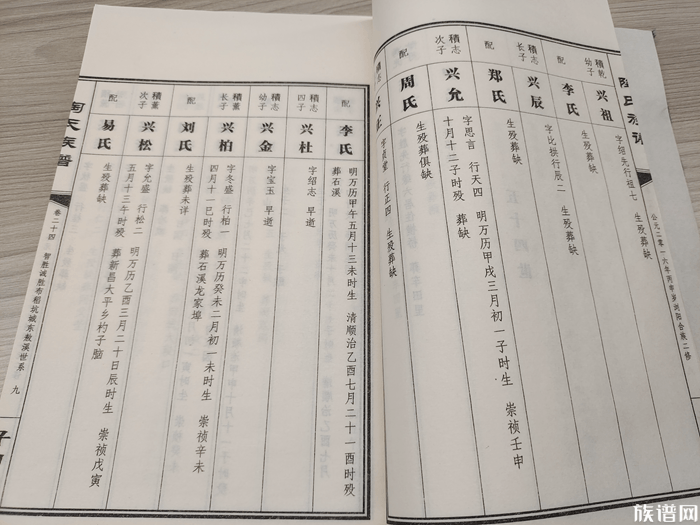 公元二零一六年丙申岁浏阳合族二修
積乾
幼子
兴祖
字绍先行祖七 生殁葬缺
配
李氏
生殁葬缺
積志
长子
兴辰
字比拱行辰二 生殁葬缺
配
郑氏
生殁葬缺
積志
次子
兴允
字思言 行天四 明万历甲戌三月初一子时生 崇祯壬申
十月十二子时殁 葬缺
配
周氏
生殁葬俱缺
積志
行正四 生殁葬缺
配
李氏
明万历甲午五月十三未时生 清顺治乙酉七月二十一酉时殁
葬石溪
積志
四子
兴杜
字绍志 早逝
積志
幼子
兴金
字宝玉 早逝
積董
长子
兴柏
字冬盛 行柏一 明万历癸未二月初一未时生 崇祯辛未
四月十一巳时殁 葬石溪龙家埠
配
刘氏
生殁葬未详
積董
次子
兴松
字允盛 行松二 明万历乙酉三月二十日辰时生 崇祯戊寅
五月十三午时殁 葬新昌大平乡杓子脑
配
易氏
生殁葬缺
陶氏族谱
卷二十四
智胜诚胜布稻坑城东敖溪世系 九
族谱网